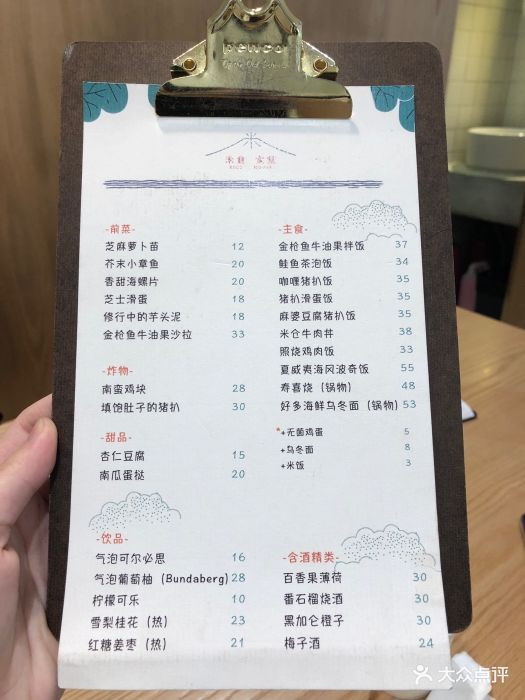 penco
米仓 食堂
-前菜-
芝麻萝卜苗 12
芥末小章鱼 20
香甜海螺片 20
芝士滑蛋 18
修行中的芋头泥 18
金枪鱼牛油果沙拉 33
-炸物-
南蛮鸡块 28
填饱肚子的猪扒 30
-甜品-
杏仁豆腐 15
南瓜蛋挞 20
-饮品-
气泡可尔必思 16
气泡葡萄柚（Bundaberg）28
柠檬可乐 10
雪梨桂花（热） 23
红糖姜枣（热） 21
-主食-
金枪鱼牛油果拌饭 37
鲑鱼茶泡饭 34
咖喱猪扒饭 35
猪扒滑蛋饭 35
麻婆豆腐猪扒饭 35
米仓牛肉丼 38
照烧鸡肉饭 33
夏威夷海风波奇饭 55
寿喜烧（锅物） 48
好多海鲜乌冬面（锅物）53
*+无菌鸡蛋 5
+乌冬面 8
+米饭 3
-含酒精类-
百香果薄荷 30
番石榴烧酒 30
黑加仑橙子 30
梅子酒 24
大众点评